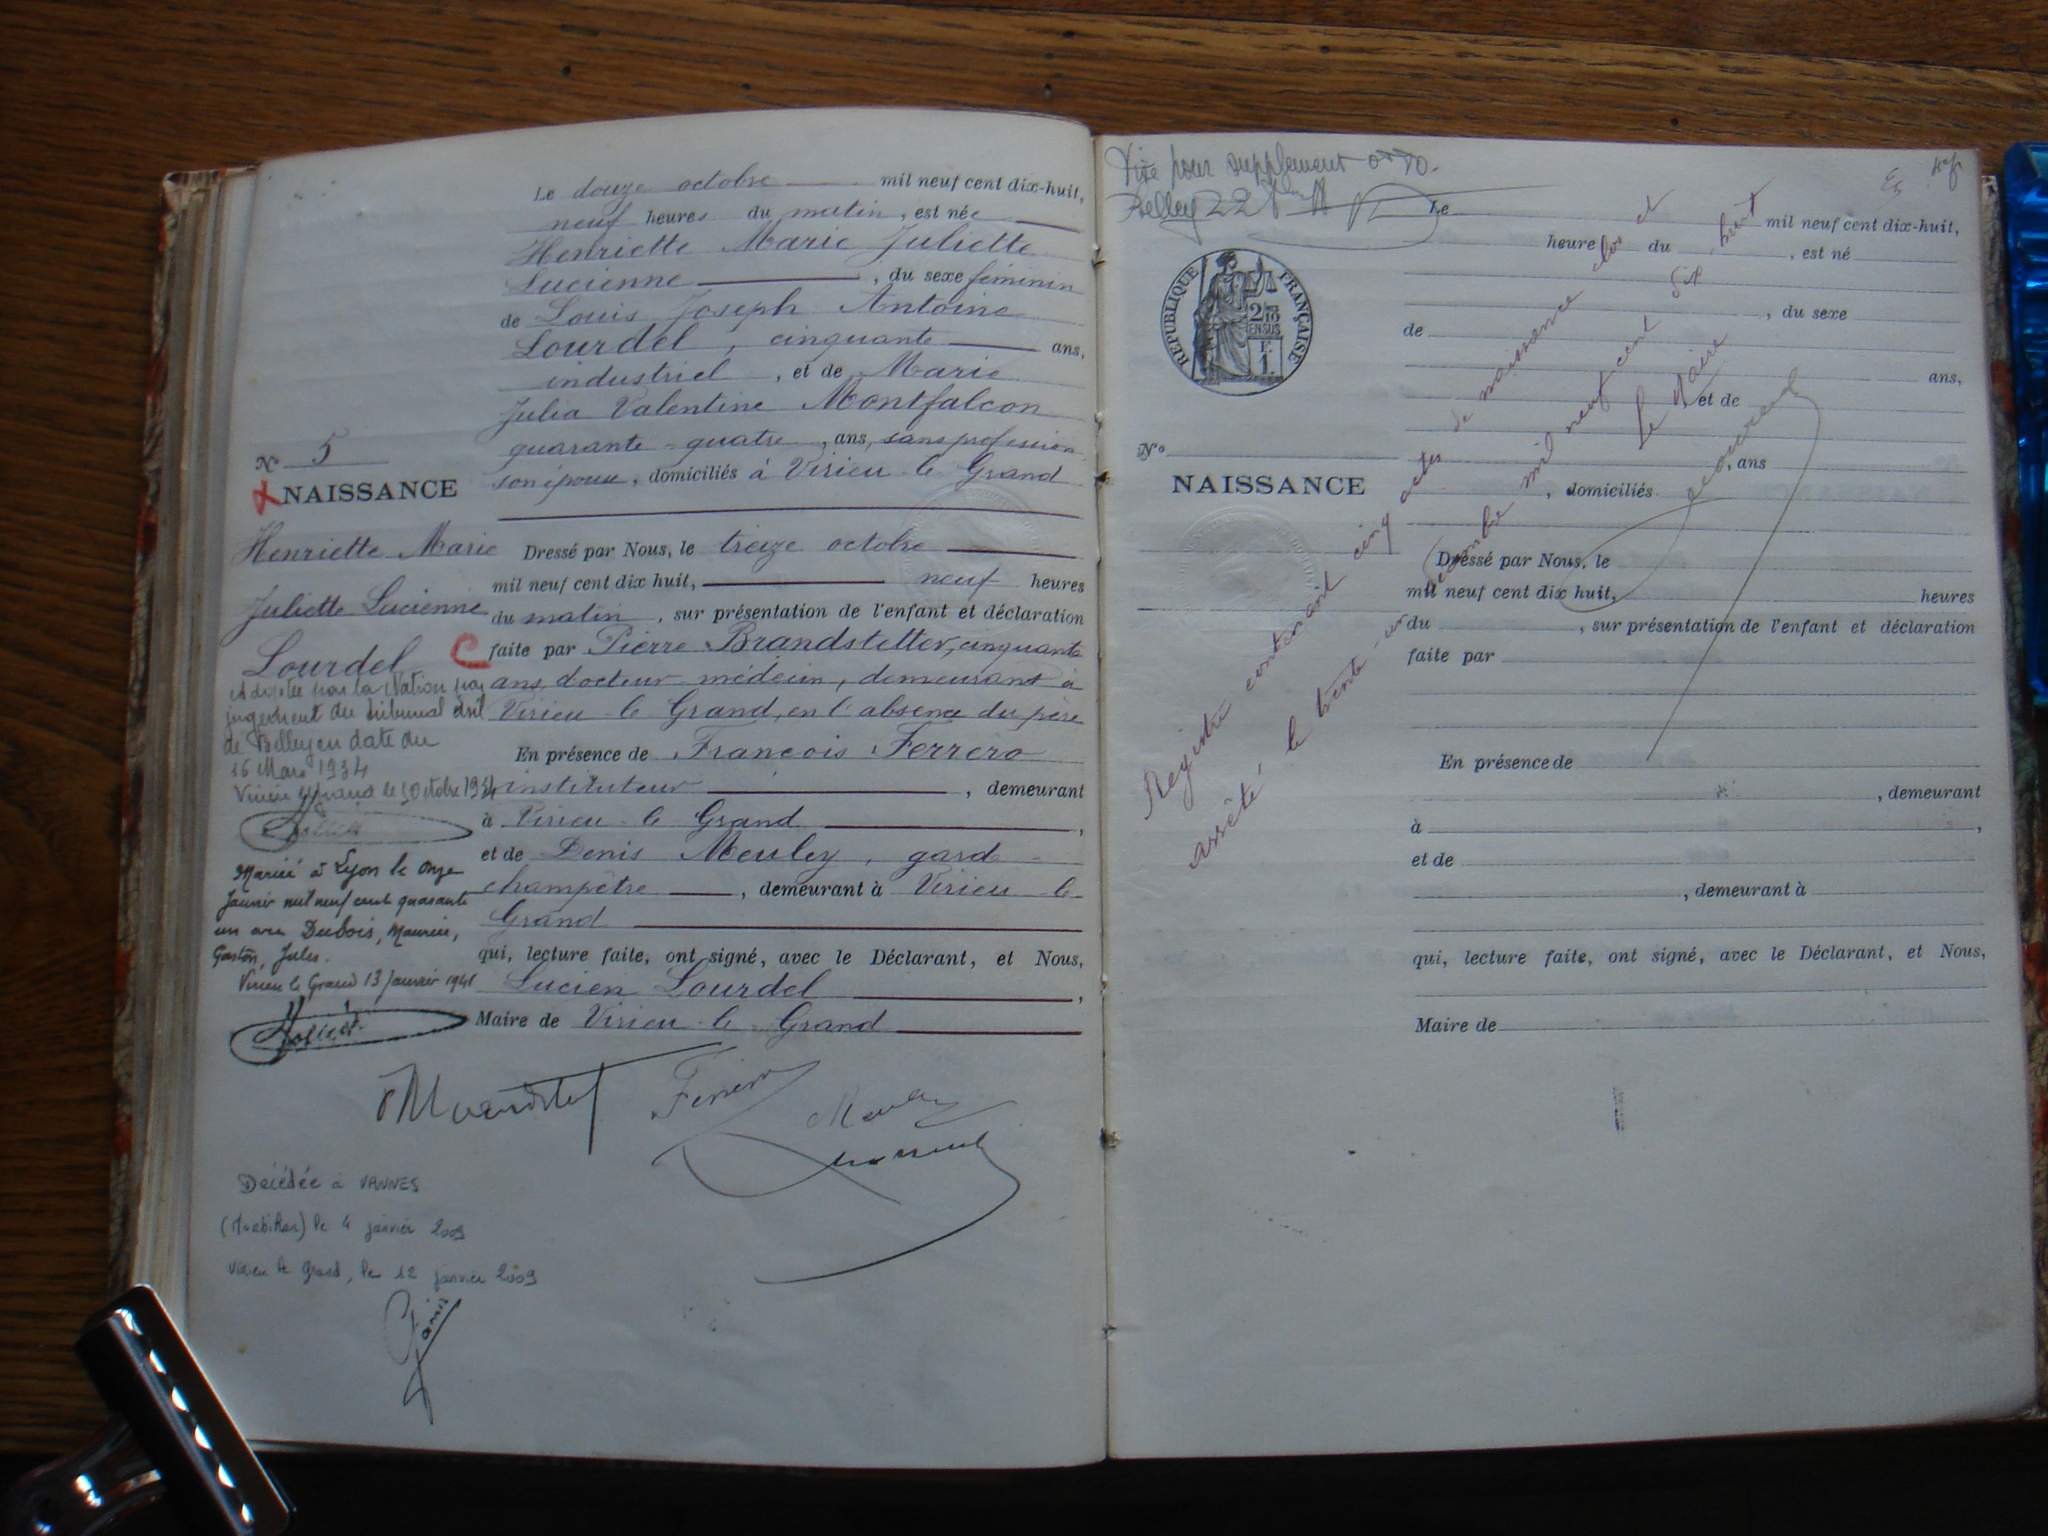 Le douze octobre mil neuf cent dix-huit,
neuf heures du matin, est née
Henriette Marie Juliette
Lucienne, du sexe féminin
de Louis Joseph Antoine
Lourdel, cinquante ans,
industriel, et de Marie
Julia Valentine Montfalcon
quarante-quatre, ans, sans profession
son épouse, domiciliés à Virieu-le-Grand
No 5
NAISSANCE
Henriette Marie
Juliette Lucienne
Lourdel
Adoptée par la Nation par
jugement du tribunal civil
de Belley en date du
16 Mars 1934
Virieu le Grand le Octobre 1934
Mariée à Lyon le onze
Janvier mil neuf cent quarante
un avec Dubois, Maurice,
Gaston, Jules.
Virieu le Grand 13 Janvier 1941
Dressé par Nous, le treize octobre
mil neuf cent dix huit, neuf heures
du matin, sur présentation de l'enfant et déclaration
faite par Pierre Brandstetter, cinquante
ans, docteur-médecin, demeurant à
Virieu-le-Grand, en l'absence du père
En présence de François Ferrero
instituteur, demeurant
à Virieu-le-Grand,
et de Denis Meuley, garde-
champêtre, demeurant à Virieu-le-
Grand
qui, lecture faite, ont signé, avec le Déclarant, et Nous,
Lucien Lourdel,
Maire de Virieu-le-Grand
Décédée à VANNES
(Morbihan) le 4 janvier 2009
Virieu le Grand, le 12 janvier 2009
Visé pour supplément
Belley 22
RÉPUBLIQUE FRANÇAISE
2/10 EN SUS
E.
1.
Le mil neuf cent dix-huit,
heure du, est né
, du sexe
de
ans,
, et de
, ans
No
NAISSANCE
, domiciliés
Dressé par Nous, le
mil neuf cent dix huit, heures
du, sur présentation de l'enfant et déclaration
faite par
En présence de
, demeurant
à,
et de
, demeurant à
qui, lecture faite, ont signé, avec le Déclarant, et Nous,
Maire de
Registre contenant cinq actes de naissance clos et
arrêté le trente-un décembre mil neuf cent dix-huit
Le Maire